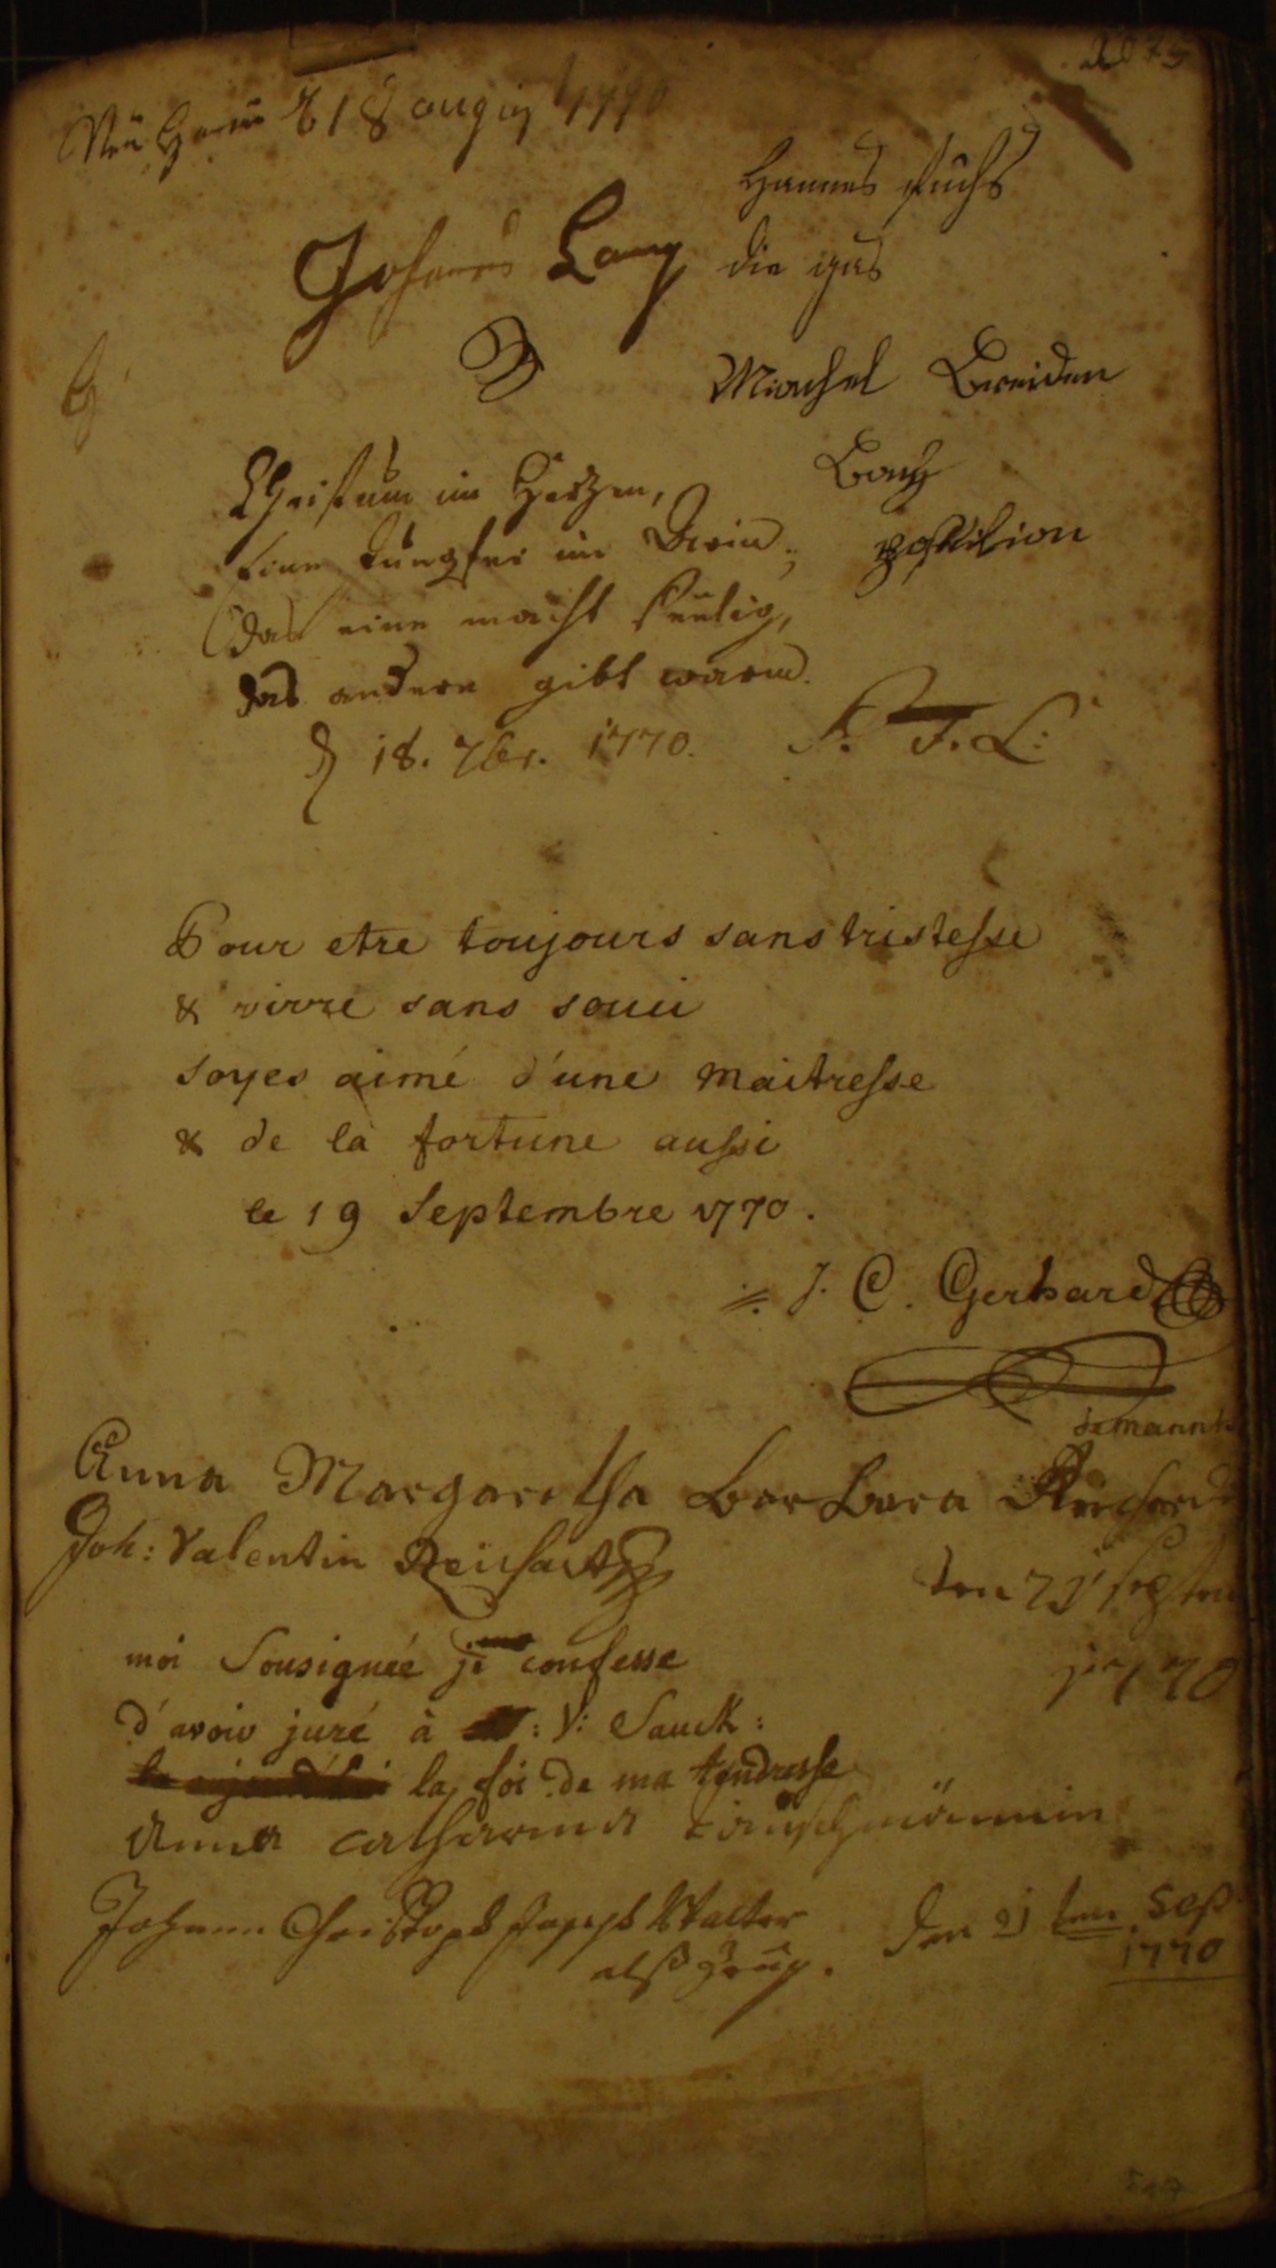 Neu Hanau d 18 augus 1770
Hannes fuchs
Johannes Lang
die gus
Machel Breiden
Bach
postilion
Christum im Hertzen,
Eine Jungfer im Arm;
das eine macht seelig,
das andere gibt warm.
d 18. 7br. 1770. F. L:
Pour etre toujours sans tristesse
& vivre sans souci
soyes aimé d'une maitresse
& de la fortune aussi
le 19 Septembre 1770.
J. C. Gerhard
Anna Margaretha Barbara
Joh: Valentin Reichart
den 21 septem
1770
moi Sousignée je confesse
d'avoir juré à : V: Sauck:
la foi de ma tendresse
Anna Catharina
Johann Christoph Joseph Walter den 21 ten Sep
alß Zeug. 1770